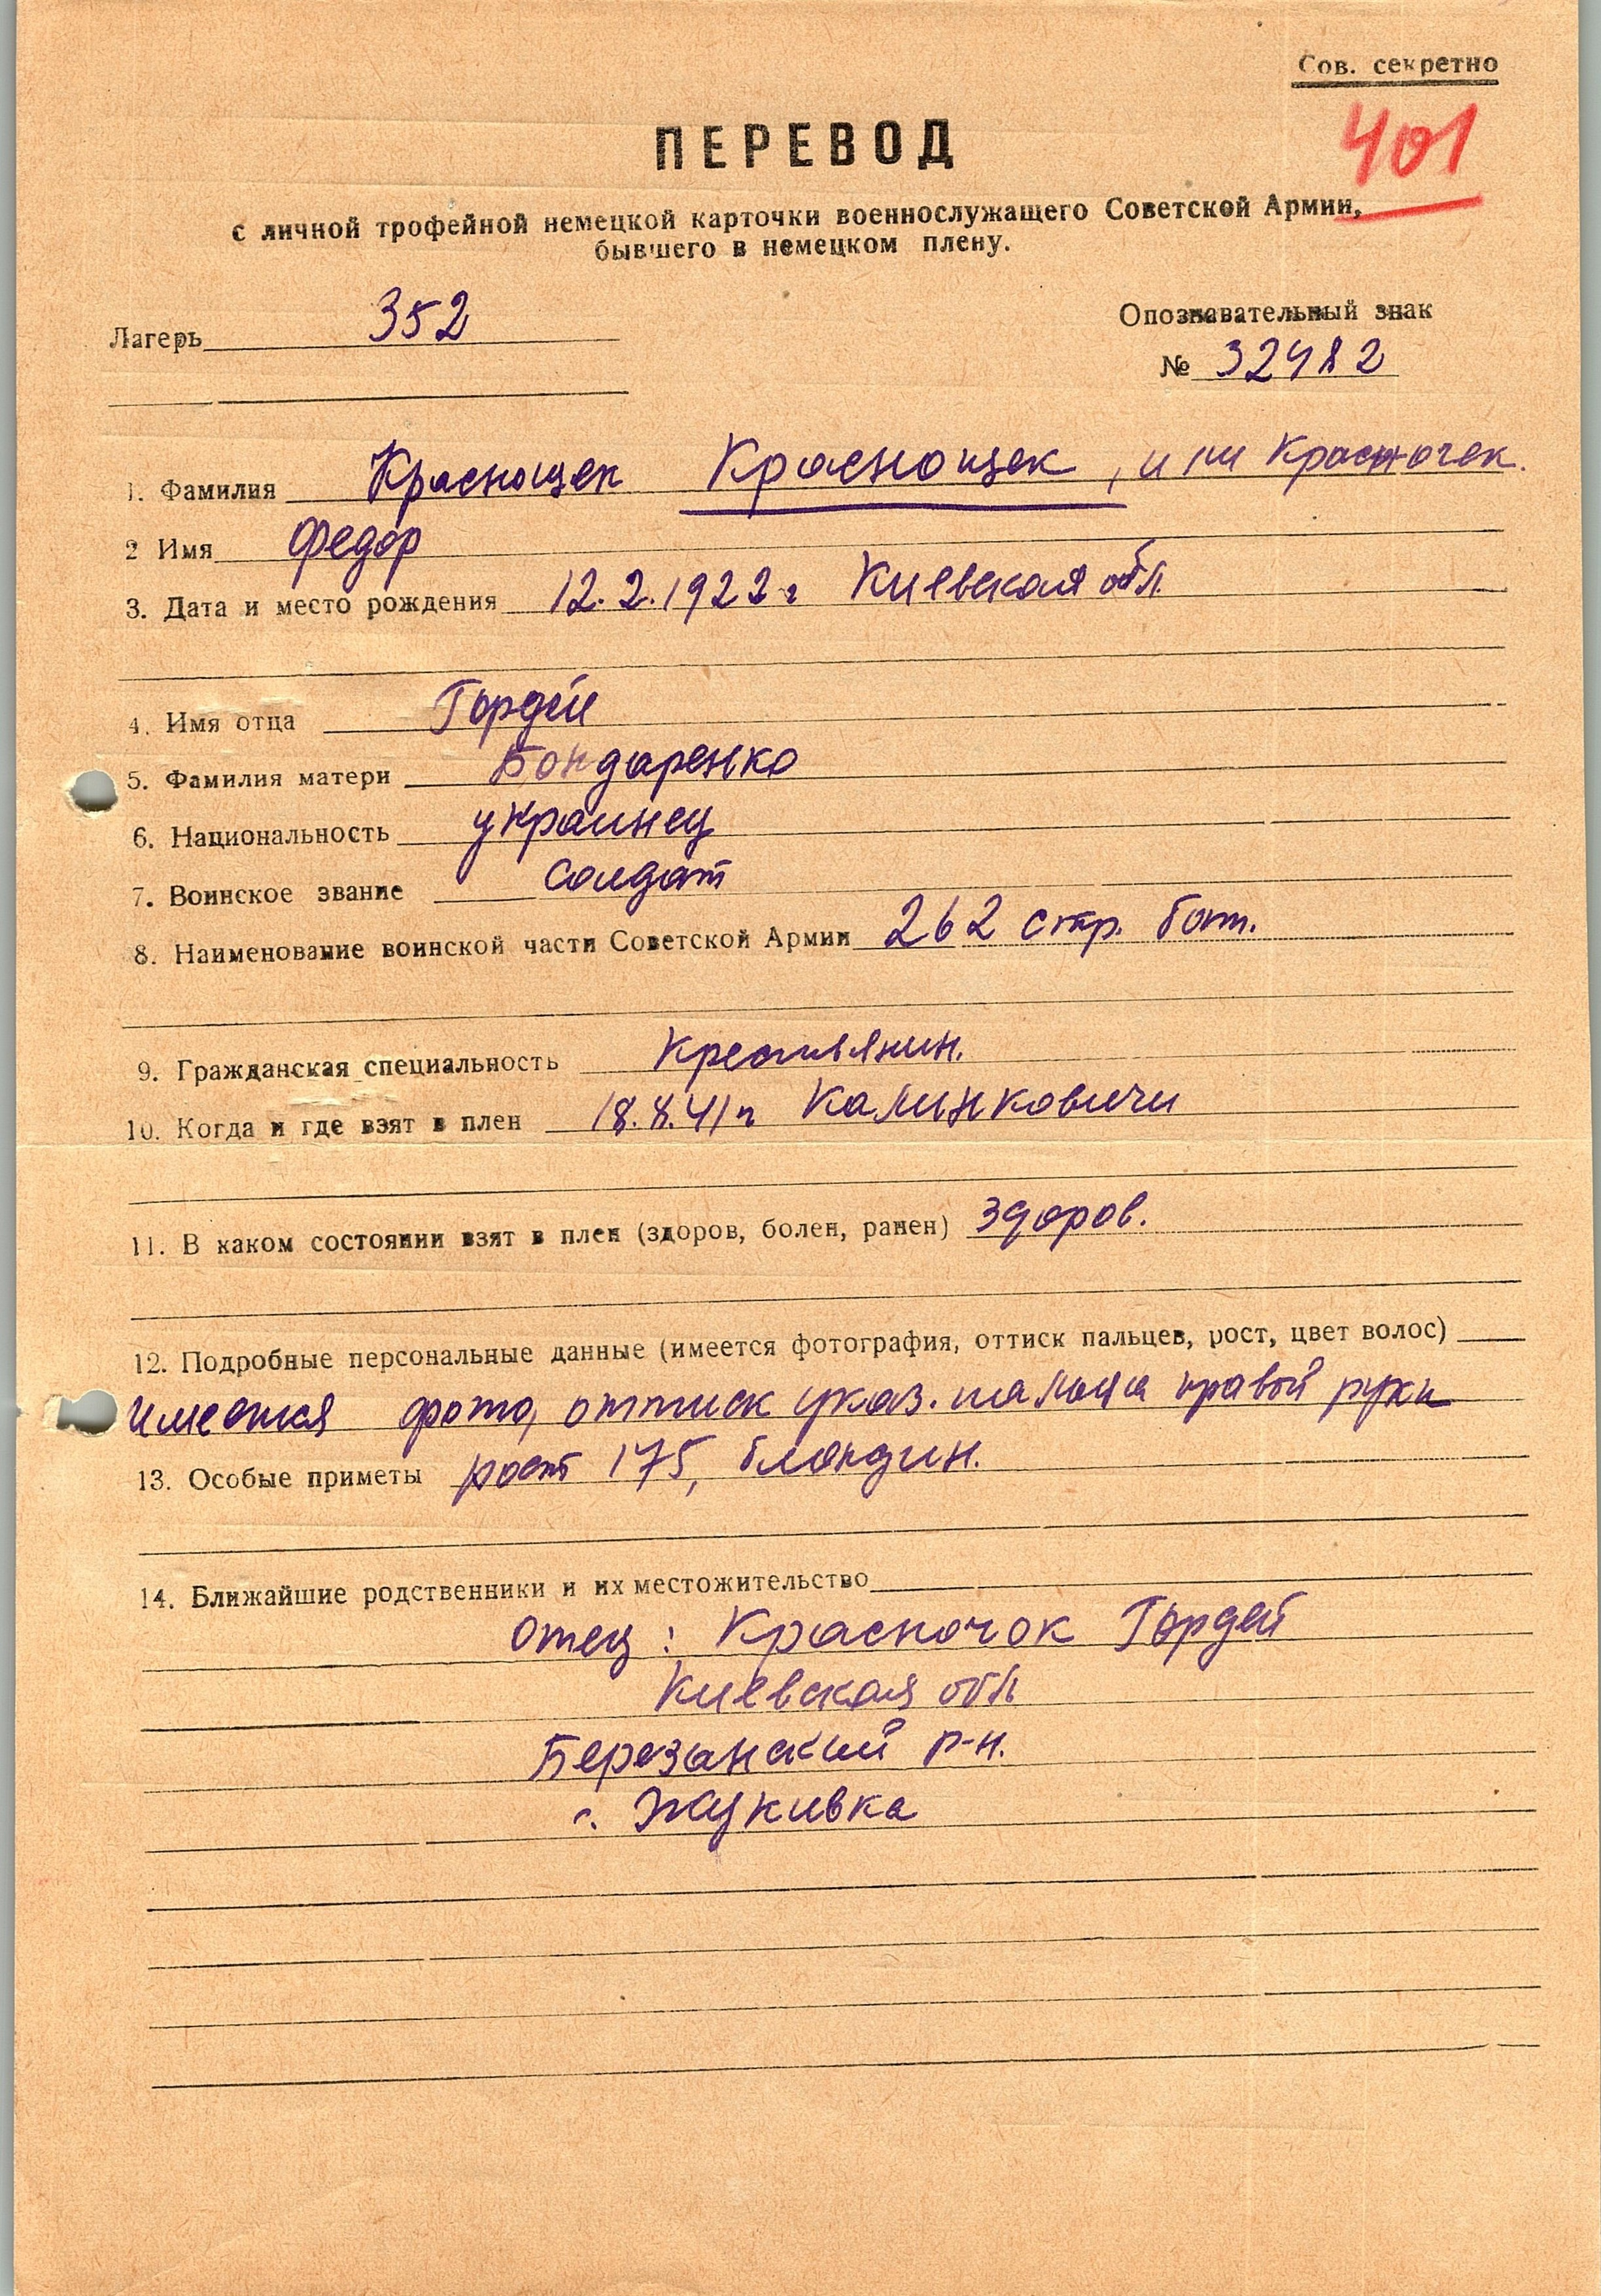 Сов. секретно
401
ПЕРЕВОД
с личной трофейной немецкой карточки военнослужащего Советской Армии,
бывшего в немецком плену.
Лагерь 352
Опознавательный знак
№ 32482
1. Фамилия Краснощек Краснощек, или Красночек.
2 Имя Федор
3. Дата и место рождения 12.2.1922 г Киевская обл.
4. Имя отца Гордей
5. Фамилия матери Бондаренко
6. Национальность украинец
7. Воинское звание солдат
8. Наименование воинской части Советской Армии 262 стр. бат.
9. Гражданская специальность Крестьянин.
10. Когда и где взят в плен 18.8.41 г Калинковичи
11. В каком состоянии взят в плен (здоров, болен, ранен) здоров.
12. Подробные персональные данные (имеется фотография, оттиск пальцев, рост, цвет волос)
имеется фото, оттиск указ. пальца правой руки
13. Особые приметы рост 175, блондин.
14. Ближайшие родственники и их местожительство
отец: Красночок Гордей
Киевская обл
Березанский р-н.
с. Жукивка